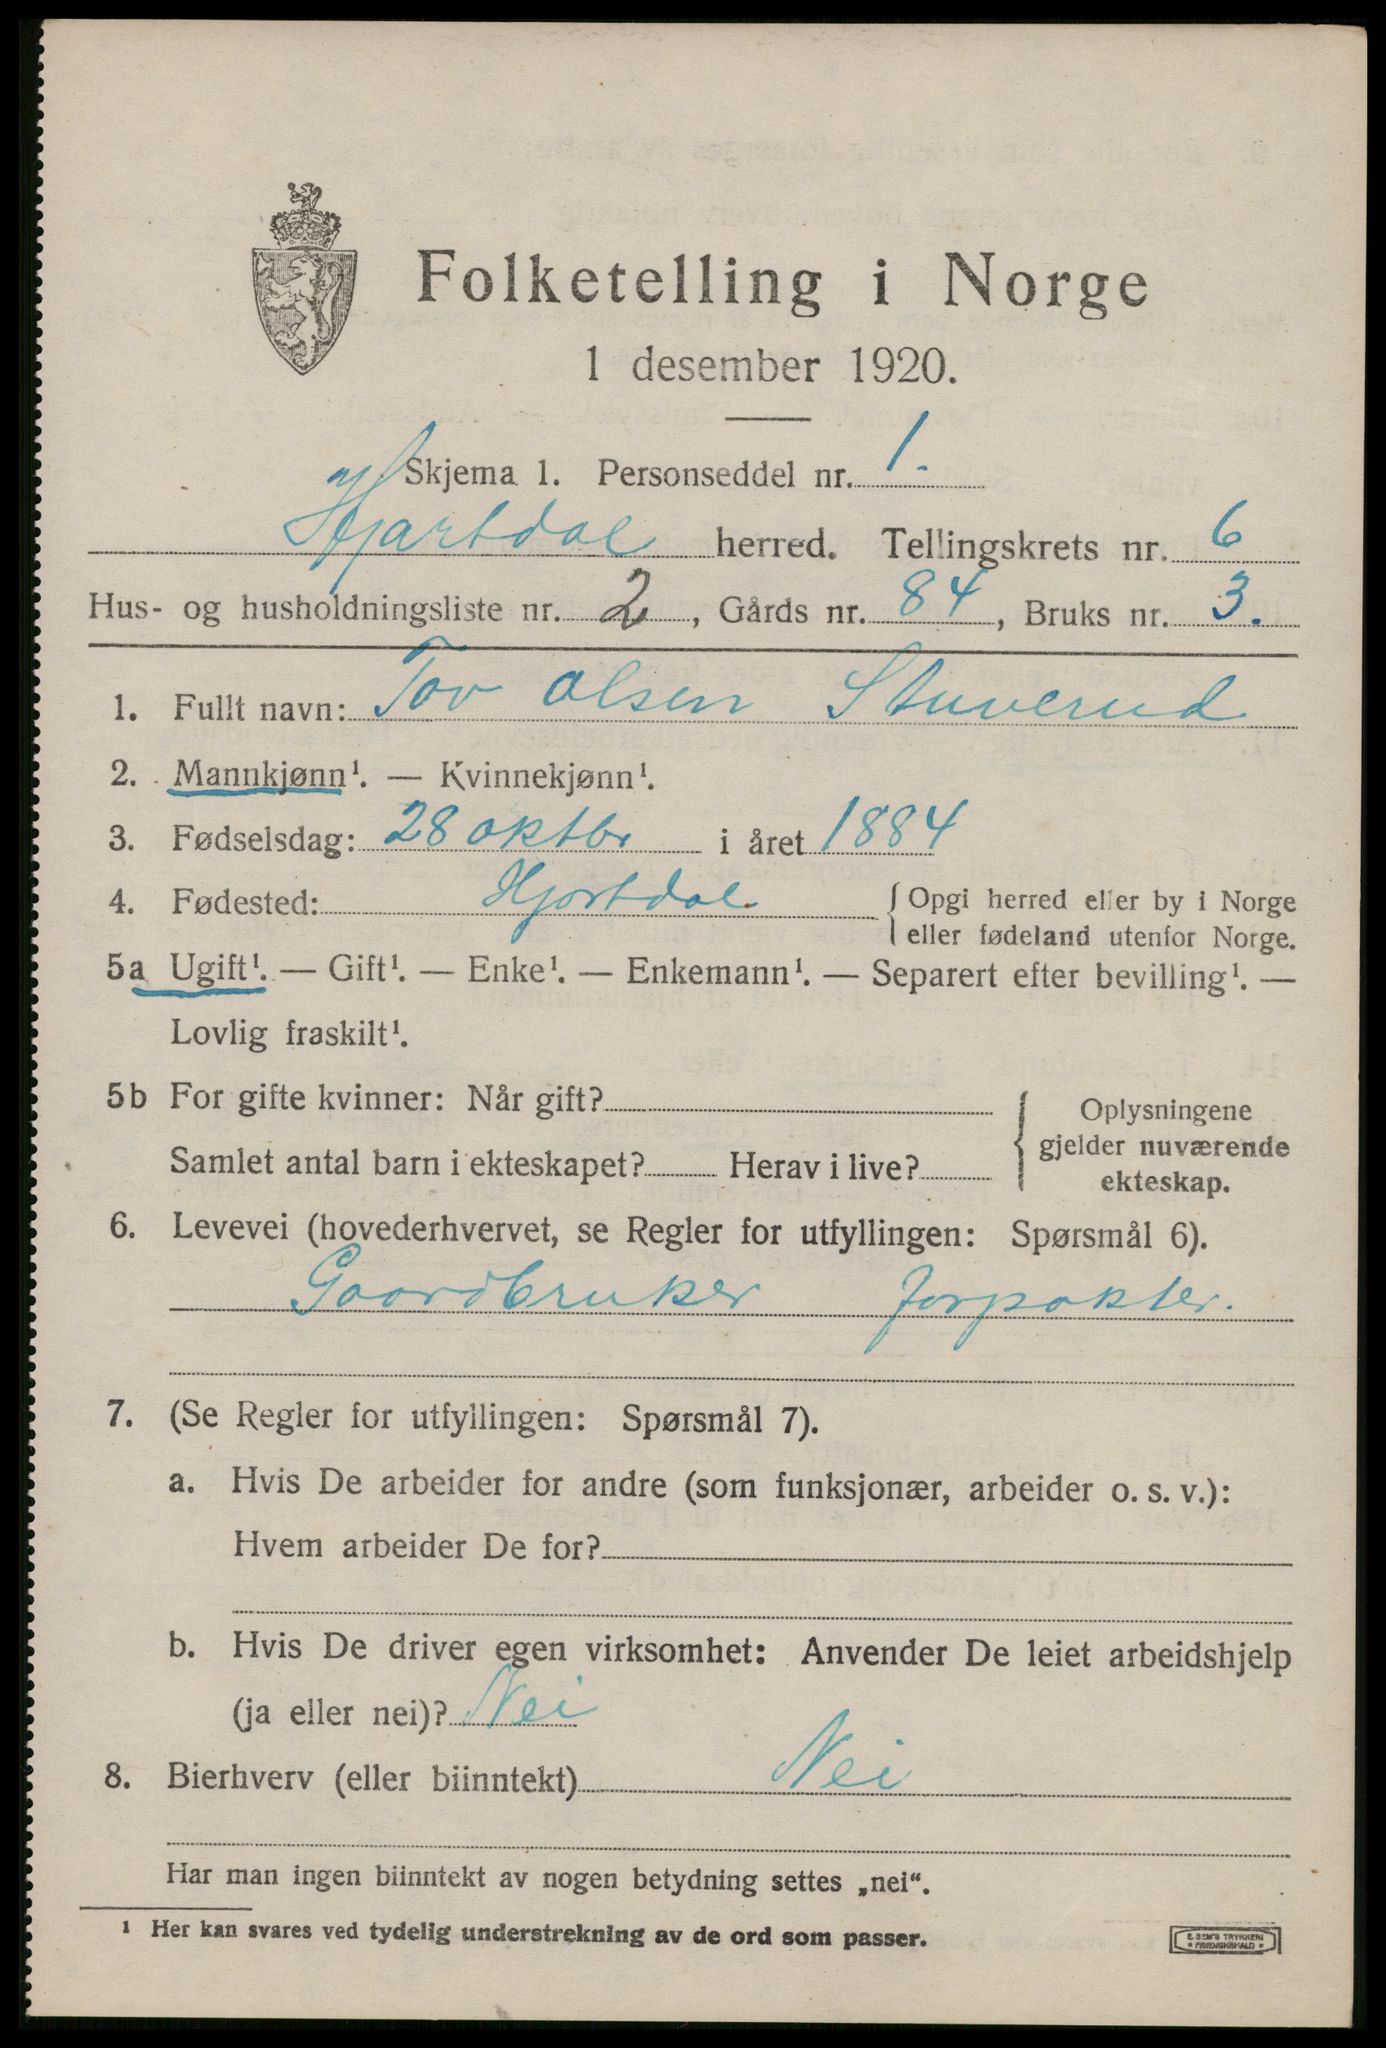 Folketelling i Norge
1 desember 1920.
Skjema 1. Personseddel nr. 1.
Hjartdal herred. Tellingskrets nr. 6
Hus- og husholdningsliste nr. 2, Gårds nr. 84, Bruks nr. 3.
1. Fullt navn: Tov Olsen Stuverud
2. Mannkjønn¹. — Kvinnekjønn¹.
3. Fødselsdag: 28 oktbr i året 1884
4. Fødested: Hjartdal { Opgi herred eller by i Norge
eller fødeland utenfor Norge.
5a Ugift¹. — Gift¹. — Enke¹. — Enkemann¹. — Separert efter bevilling¹. —
Lovlig fraskilt¹.
5b For gifte kvinner: Når gift?
Samlet antal barn i ekteskapet? Herav i live?
{ Oplysningene
gjelder nuværende
ekteskap.
6. Levevei (hovederhvervet, se Regler for utfyllingen: Spørsmål 6).
Gaardbruker forpakter.
7. (Se Regler for utfyllingen: Spørsmål 7).
a. Hvis De arbeider for andre (som funksjonær, arbeider o. s. v.):
Hvem arbeider De for?
b. Hvis De driver egen virksomhet: Anvender De leiet arbeidshjelp
(ja eller nei)? Nei
8. Bierhverv (eller biinntekt) Nei
Har man ingen biinntekt av nogen betydning settes „nei“.
¹ Her kan svares ved tydelig understrekning av de ord som passer.
E. SEM'S TRYKKERI
• FREDRIKSHALD •